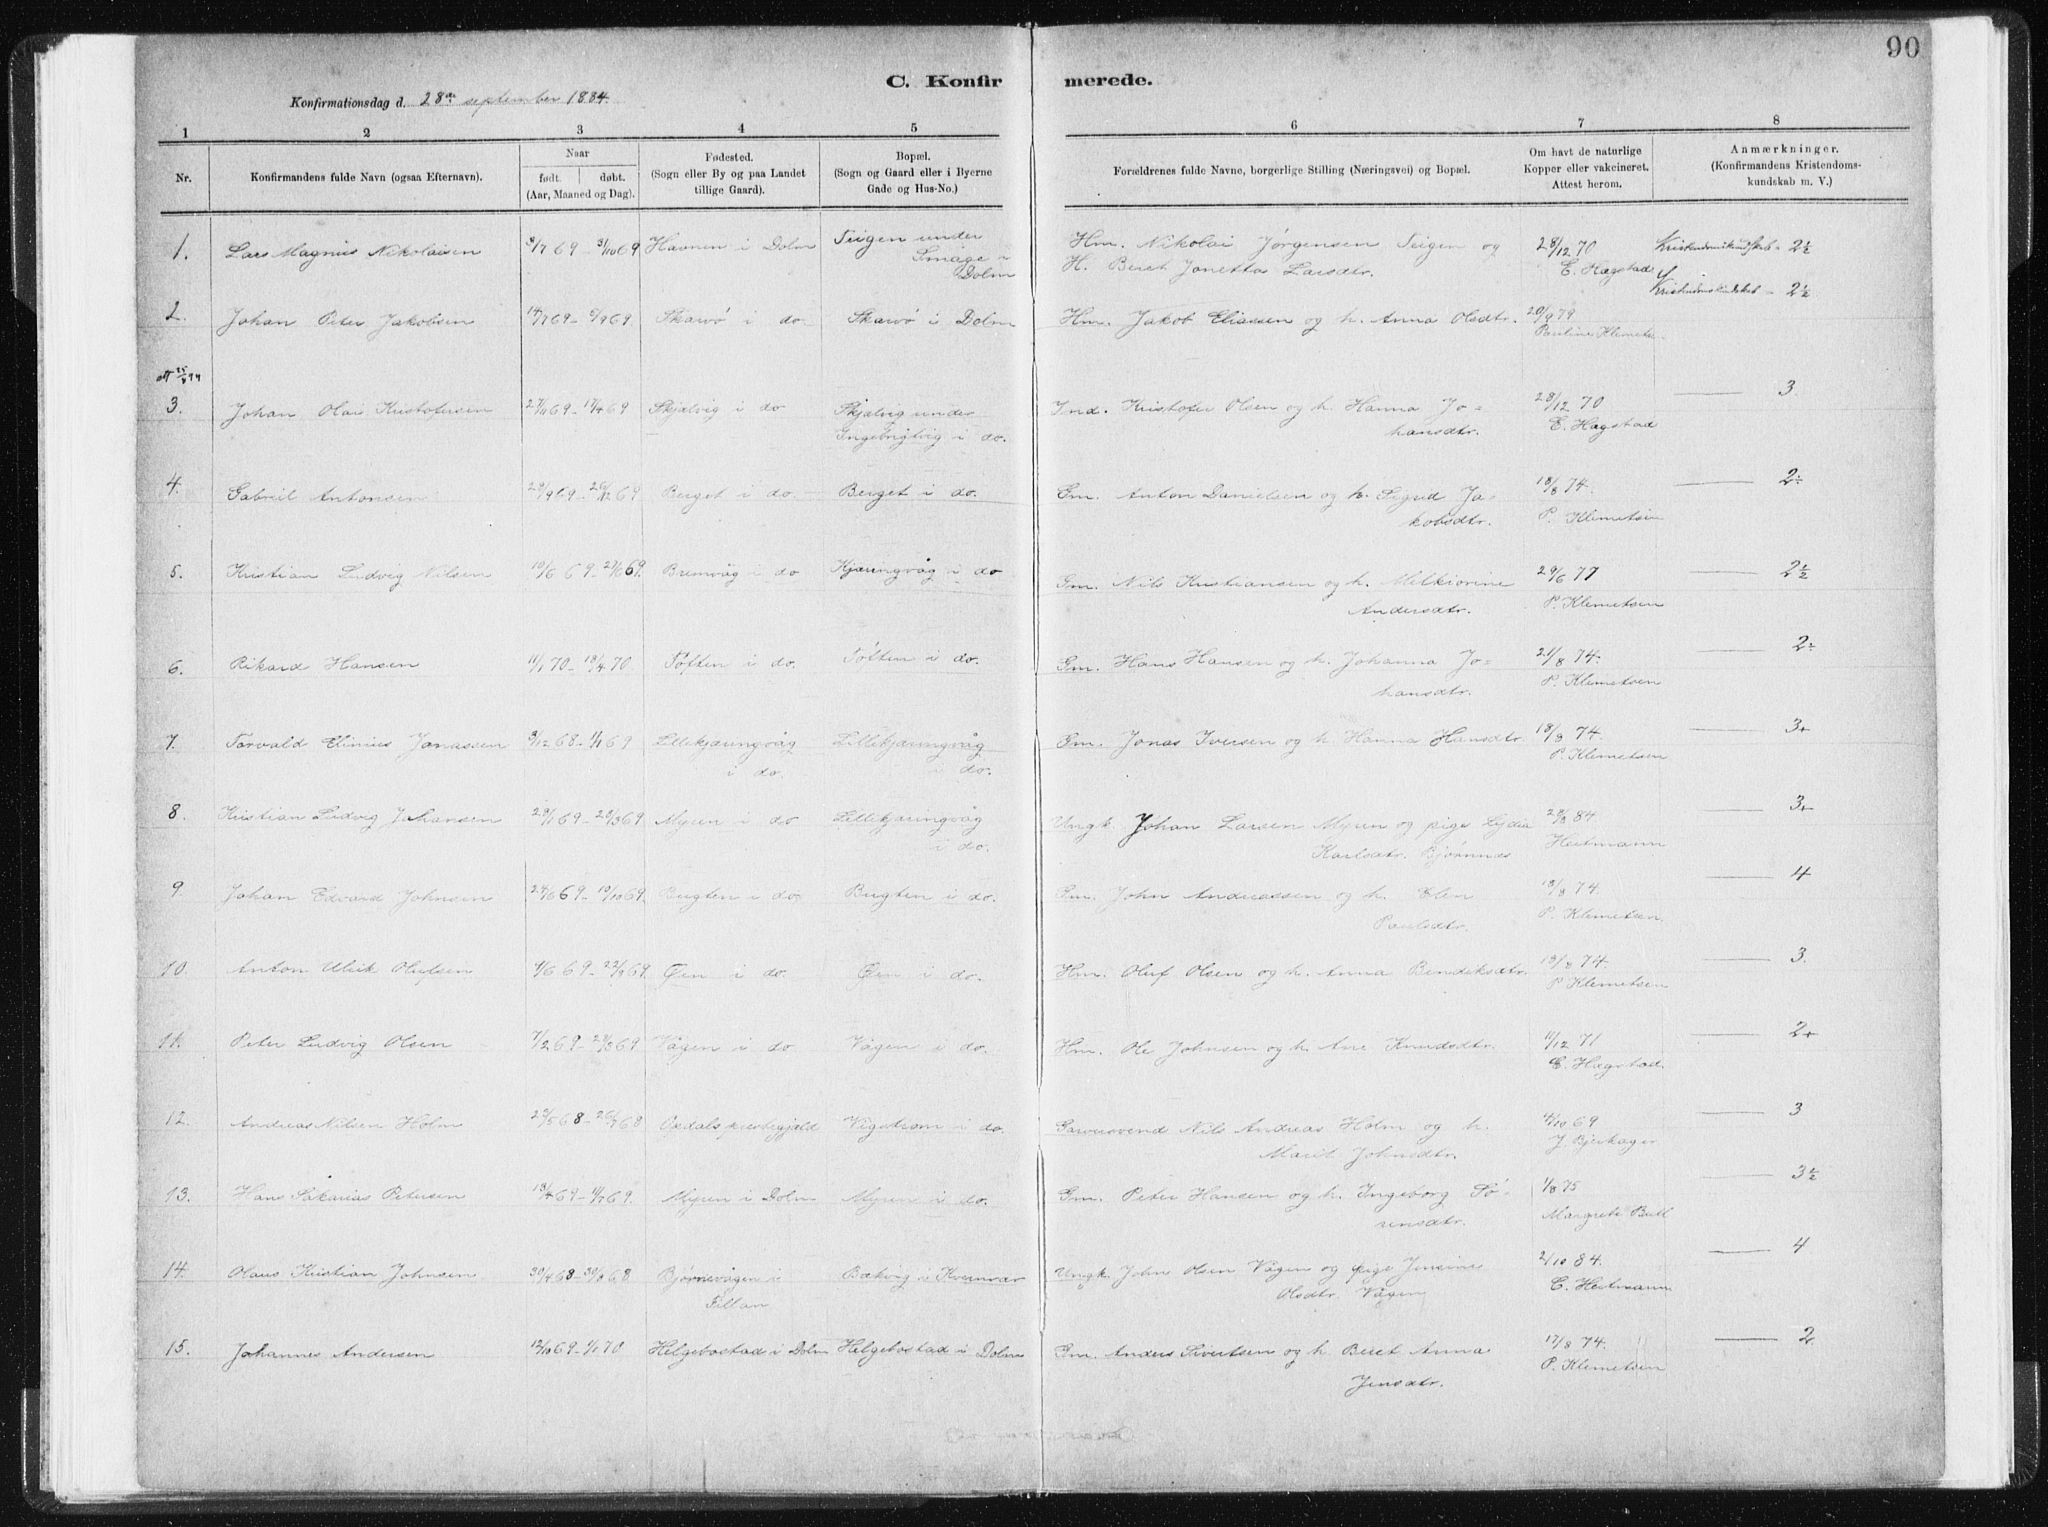 90
C. Konfirmerede.
Konfirmationsdag d. 28de september 1884.
1 2 3 4 5 6 7 8
Nr.
Konfirmandens fulde Navn (ogsaa Efternavn).
Naar
født. døbt.
(Aar, Maaned og Dag).
Fødested.
(Sogn eller By og paa Landet
tillige Gaard).
Bopæl.
(Sogn og Gaard eller i Byerne
Gade og Hus-No.)
Forældrenes fulde Navne, borgerlige Stilling (Næringsvei) og Bopæl.
Om havt de naturlige
Kopper eller vakcineret.
Attest herom.
Anmærkninger.
(Konfirmandens Kristendoms-
kundskab m. V.)
1. Lars Magnus Nikolaisen 3/7 69 - 3/10 69 Havnen i Dolm Teigen under Hm. Nikolai Jørgensen Teigen og 28/12 70 Kristendomskundskab - 2½
Smage i H. Beret Jonetta Larsdtr. E. Hagstad
Dolm
2. Johan Peter Jakobsen 14/7 69 - 5/9 69 Skarvø i do. Skarvø i Dolm Hm. Jakob Eliassen og h. Anna Olsdtr. 20/9 79 Kristendomskundskab - 2½
Pauline Klemetsen
att 25/8 94
3. Johan Olai Kristofersen 69 - 69 Skjelvig i do Skjelvig under Ind. Kristofer Olsen og h. Hanna Jo= 28/12 70 3
Ingebrigtvig i do. hansdtr. E. Hagstad
4. Gabriel Antonsen 29/9 69 - 26/12 69 Berget i do. Berget i do. Gm. Anton Danielsen og h. Sigrid Ja= 18/8 74. 2÷
kobsdtr. P. Klemetsen
5. Kristian Ludvig Nilsen 10/6 69 - 27/6 69. Bremvåg i do Kjæringvåg i do Gm. Nils Kristiansen og h. Melkiorine 29/6 77 2½
Andersdtr. P. Klemetsen
6. Rikard Hansen 11/1 70 - 18/4 70 Tøften i do. Tøften i do. Gm. Hans Hansen og h. Johanna Jo= 21/8 74. 2÷
hansdtr. P. Klemetsen
7. Torvald Elinius Jonassen 3/12 68 - 1/1 69 Lillekjæringvåg Lillekjæringvåg Gm. Jonas Iversen og h. Hanna Hansdtr. 18/8 74. 3+
i do. i do. P. Klemetsen
8. Kristian Ludvig Johansen 29/1 69 - 28/3 69 Myren i do Lillekjæringvåg Ungk. Johan Larsen Myren og pige Lydia 29/8 84 3+
i do. Karlsdtr. Bjørnnes Heitmann
9. Johan Edvard Johnsen 24/6 69 - 10/10 69. Bugten i do. Bugten i do. Gm. John Andreassen og h. Elen 18/8 74. 4
Paulsdtr. P. Klemetsen.
10. Anton Ulrik Olufsen 4/6 69 - 22/8 69. Øen i do. Øen i do. Hm. Oluf Olsen og h. Anna Bendiksdtr. 18/8 74. 3.
P. Klemetsen
11. Peter Ludvig Olsen 7/2 69 - 28/3 69 Vågen i do Vågen i do. Hm. Ole Johnsen og h. Ane Knudsdtr. 11/12 71 2+
E. Hagstad.
12. Andreas Nilsen Holm 23/5 68 - 26/7 68 Opdals præstegjeld Vigstrøm i do. Garversvend Nils Andreas Holm og h. 4/10 69 3
Marit Johnsdtr. J. Bjerkager
13. Hans Sakarias Petersen 13/4 69 - 11/7 69. Myren i Dolm Myren i do. Gm. Peter Hansen og h. Ingeborg Sø= 1/8 75 3½
rensdtr. Margrete Bull
14. Olaus Kristian Johnsen 30/4 68 - 30/8 68 Bjørnevågen i Bækvig i Kvenvær Ungk. John Olsen Vågen og pige Jensine 2/10 84. 4
Fillan Olsdtr. Vågen C. Heitmann
15. Johannes Andersen 12/10 69 - 1/1 70 Helgebostad i Dolm Helgebostad i Dolm Gm. Anders Sivertsen og h. Beret Anna 17/8 74. 2
Jensdtr. P. Klemetsen